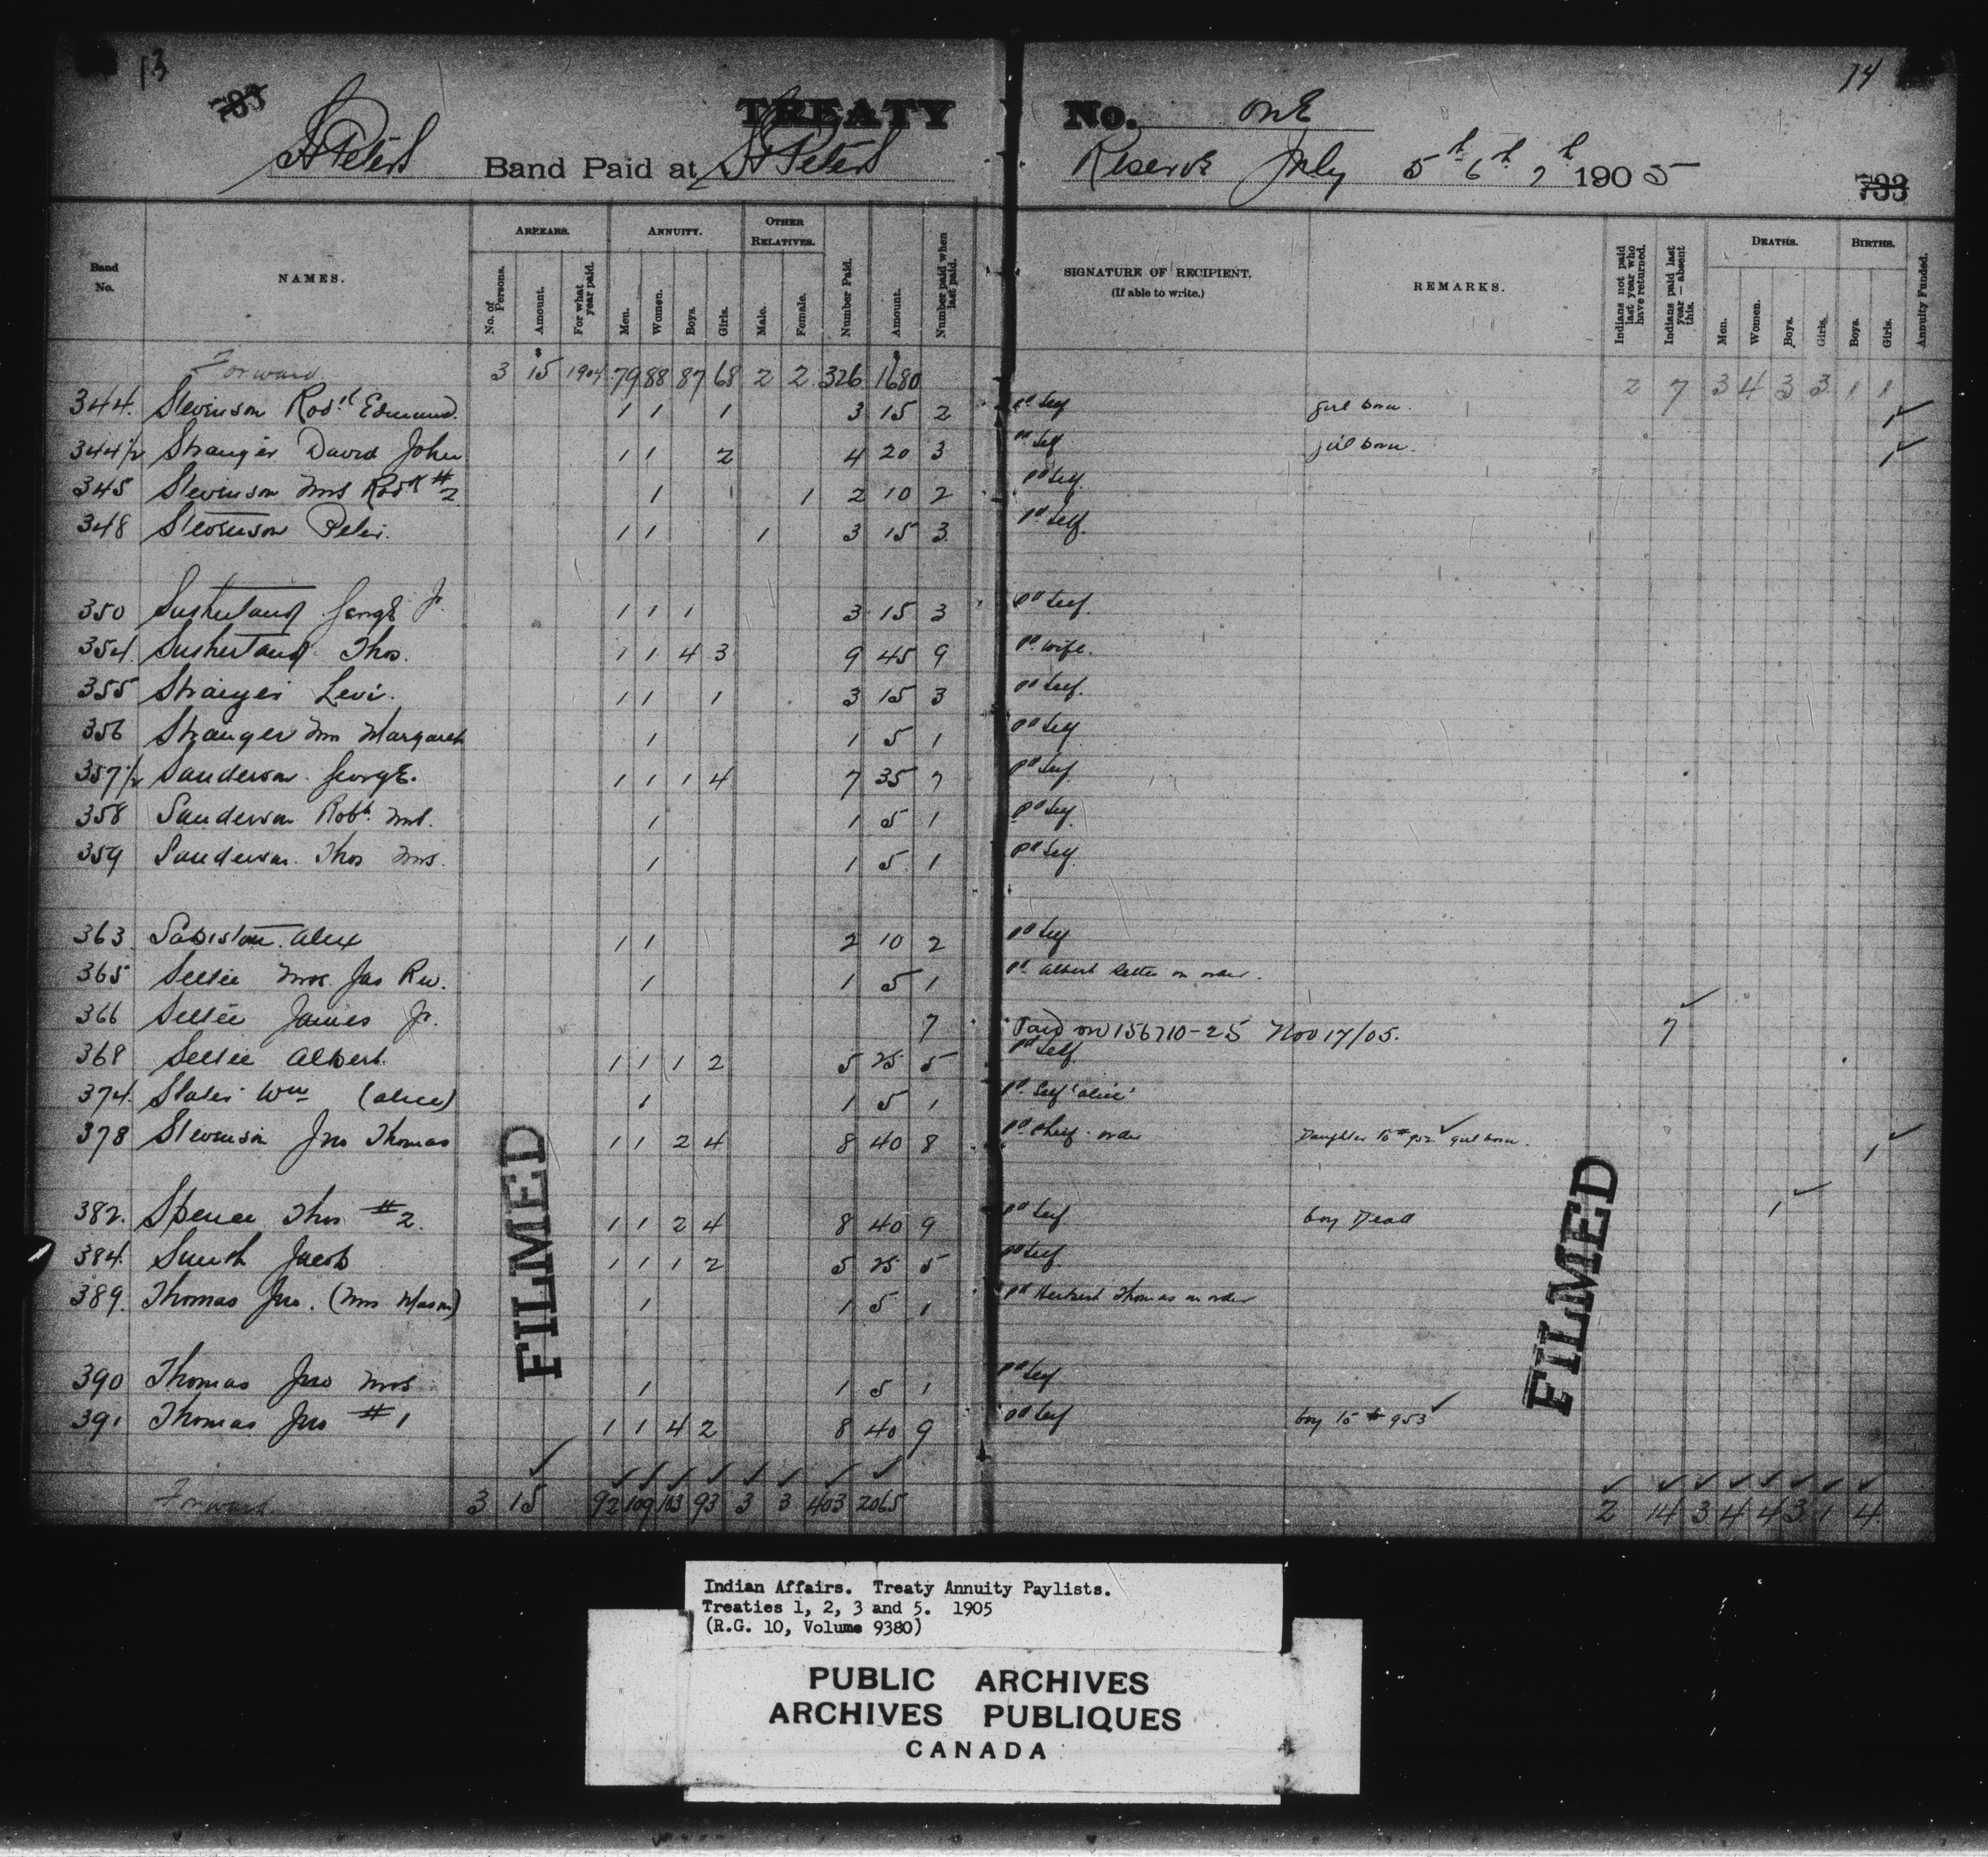 13
14
TREATY No. OnE
St Peters Band Paid at St Peters Reserve July 5th 6th 7th 1905
733
Band No. NAMES. ARREARS. ANNUITY. OTHER RELATIVES. Number Paid. Amount. Number paid when last paid. SIGNATURE OF RECIPIENT. (If able to write.) REMARKS. Indians not paid last year who have returned. Indians paid last year — absent this. DEATHS. BIRTHS. Annuity Funded.
No. of Persons. Amount. For what year paid. Men. Women. Boys. Girls. Male. Female. Men. Women. Boys. Girls. Boys. Girls.
Forward 3 15 1904 79 88 87 68 2 2 326 1680 2 7 3 4 3 3 1 1
344. Stevenson Rodk Edmund. 1 1 1 3 15 2 pd self girl born. 1
344½ Stranger David John 1 1 2 4 20 3 pd self girl born. 1
345 Stevenson Mrs Rodk #2 1 1 2 10 2 pd self
348 Stevenson Peter. 1 1 1 3 15 3 pd self.
350 Sutherland George Jr. 1 1 1 3 15 3 pd self.
354. Sutherland Thos. 1 1 4 3 9 45 9 pd wife.
355 Stranger Levi. 1 1 1 3 15 3 pd self.
356 Stranger Mrs Margaret 1 1 5 1 pd self
357½ Sanderson George. 1 1 1 4 7 35 7 pd self
358 Sanderson Robt. Mrs. 1 1 5 1 pd self.
359 Sanderson. Thos Mrs. 1 1 5 1 pd self
363 Sabiston. Alex 1 1 2 10 2 pd self
365 Settee Mrs. Jas Rev. 1 1 5 1 pd Albert Settee on order.
366 Settee James Jr. 7 Paid on 156710-25 Nov 17/05. 7
368 Settee Albert. 1 1 1 2 5 25 5 pd self.
374. Slater Wm (Alice) 1 1 5 1 pd Self 'alice'
378 Stevenson Jno Thomas 1 1 2 4 8 40 8 pd Chief. order Daughter to #952 girl born. 1
382. Spence Thos #2. 1 1 2 4 8 40 9 pd self boy Dead 1
384. Smith Jacob 1 1 1 2 5 25 5 pd self.
389. Thomas Jno. (Mrs Mason) 1 1 5 1 pd Herbert Thomas on order
390 Thomas Jno Mrs 1 1 5 1 pd self
391 Thomas Jno #1 1 1 4 2 8 40 9 pd self boy to #953
Forward. 3 15 92 109 103 93 3 3 403 2065 2 14 3 4 4 3 1 4
FILMED
FILMED
Indian Affairs. Treaty Annuity Paylists.
Treaties 1, 2, 3 and 5. 1905
(R.G. 10, Volume 9380)
PUBLIC ARCHIVES
ARCHIVES PUBLIQUES
CANADA